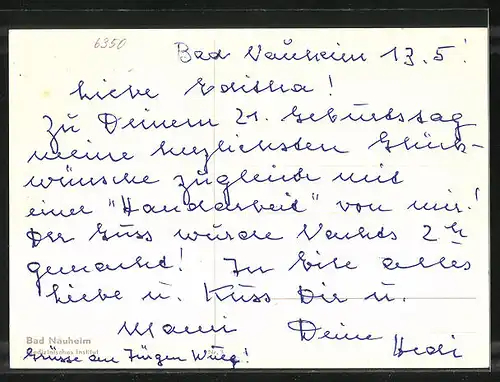 6350
Bad Nauheim 13.5.!
Liebe Editha!
Zu Deinem 21. Geburtstag
meine herzlichsten Glück-
wünsche zugleich mit
einer "Handarbeit" von mir!
Der Guss wurde Nachts 2 h
gemacht! In Eile alles
Liebe u. Kuss Dir u.
Mami Deine
Bad Nauheim
Medizinisches Institut
Grüsse an Jürgen Hedi